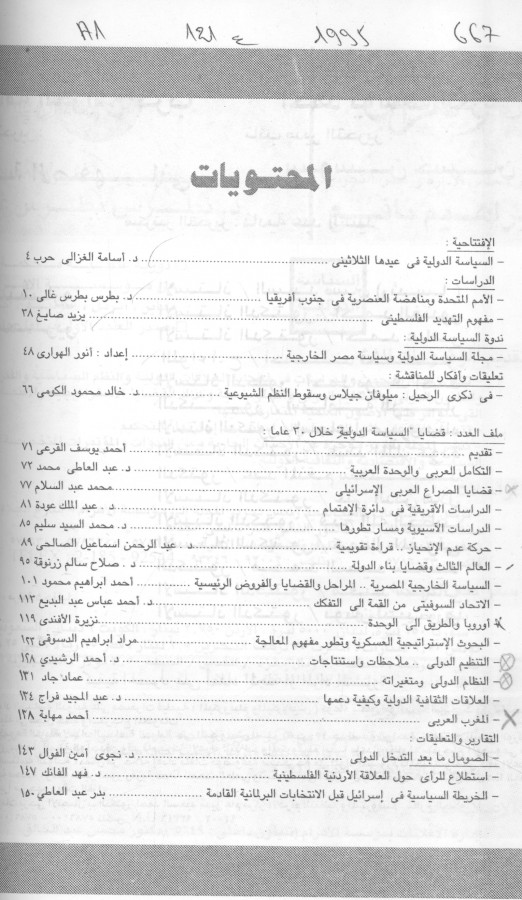 A1 ع 121 1995 667
المحتويات
الإفتتاحية :
– السياسة الدولية فى عيدها الثلاثينى ........ د. أسامة الغزالى حرب ٤
الدراسات :
– الأمم المتحدة ومناهضة العنصرية فى جنوب أفريقيا ........ د. بطرس بطرس غالى ١٠
– مفهوم التهديد الفلسطينى ........ يزيد صايغ ٣٨
ندوة السياسة الدولية :
– مجلة السياسة الدولية وسياسة مصر الخارجية ........ إعداد : أنور الهوارى ٤٨
تعليقات وأفكار للمناقشة :
– فى ذكرى الرحيل : ميلوفان جيلاس وسقوط النظم الشيوعية ........ د. خالد محمود الكومى ٦٦
ملف العدد : قضايا "السياسة الدولية" خلال ٣٠ عاما :
– تقديم ........ أحمد يوسف القرعى ٧١
– التكامل العربى والوحدة العربية ........ د. عبد العاطى محمد ٧٢
– قضايا الصراع العربى الإسرائيلى ........ محمد عبد السلام ٧٧
– الدراسات الأفريقية فى دائرة الإهتمام ........ د . عبد الملك عودة ٨١
– الدراسات الآسيوية ومسار تطورها ........ د. محمد السيد سليم ٨٥
– حركة عدم الإنحياز .. قراءة تقويمية ........ د . عبد الرحمن اسماعيل الصالحى ٨٩
– العالم الثالث وقضايا بناء الدولة ........ د . صلاح سالم زرنوقة ٩٥
– السياسة الخارجية المصرية .. المراحل والقضايا والفروض الرئيسية ........ أحمد ابراهيم محمود ١٠١
– الاتحاد السوفيتى من القمة الى التفكك ........ د. أحمد عباس عبد البديع ١١٣
– أوروبا والطريق الى الوحدة ........ نزيرة الأفندى ١١٩
– البحوث الإستراتيجية العسكرية وتطور مفهوم المعالجة ........ مراد ابراهيم الدسوقى ١٢٢
– التنظيم الدولى .. ملاحظات واستنتاجات ........ د. أحمد الرشيدى ١٢٨
– النظام الدولى ومتغيراته ........ عماد جاد ١٣١
– العلاقات الثقافية الدولية وكيفية دعمها ........ د. عبد المجيد فراج ١٣٤
– المغرب العربى ........ أحمد مهابة ١٣٨
التقارير والتعليقات :
– الصومال ما بعد التدخل الدولى ........ د. نجوى أمين الفوال ١٤٣
– استطلاع للرأى حول العلاقة الأردنية الفلسطينية ........ د. فهد الفانك ١٤٧
– الخريطة السياسية فى إسرائيل قبل الانتخابات البرلمانية القادمة ........ بدر عبد العاطى ١٥٠